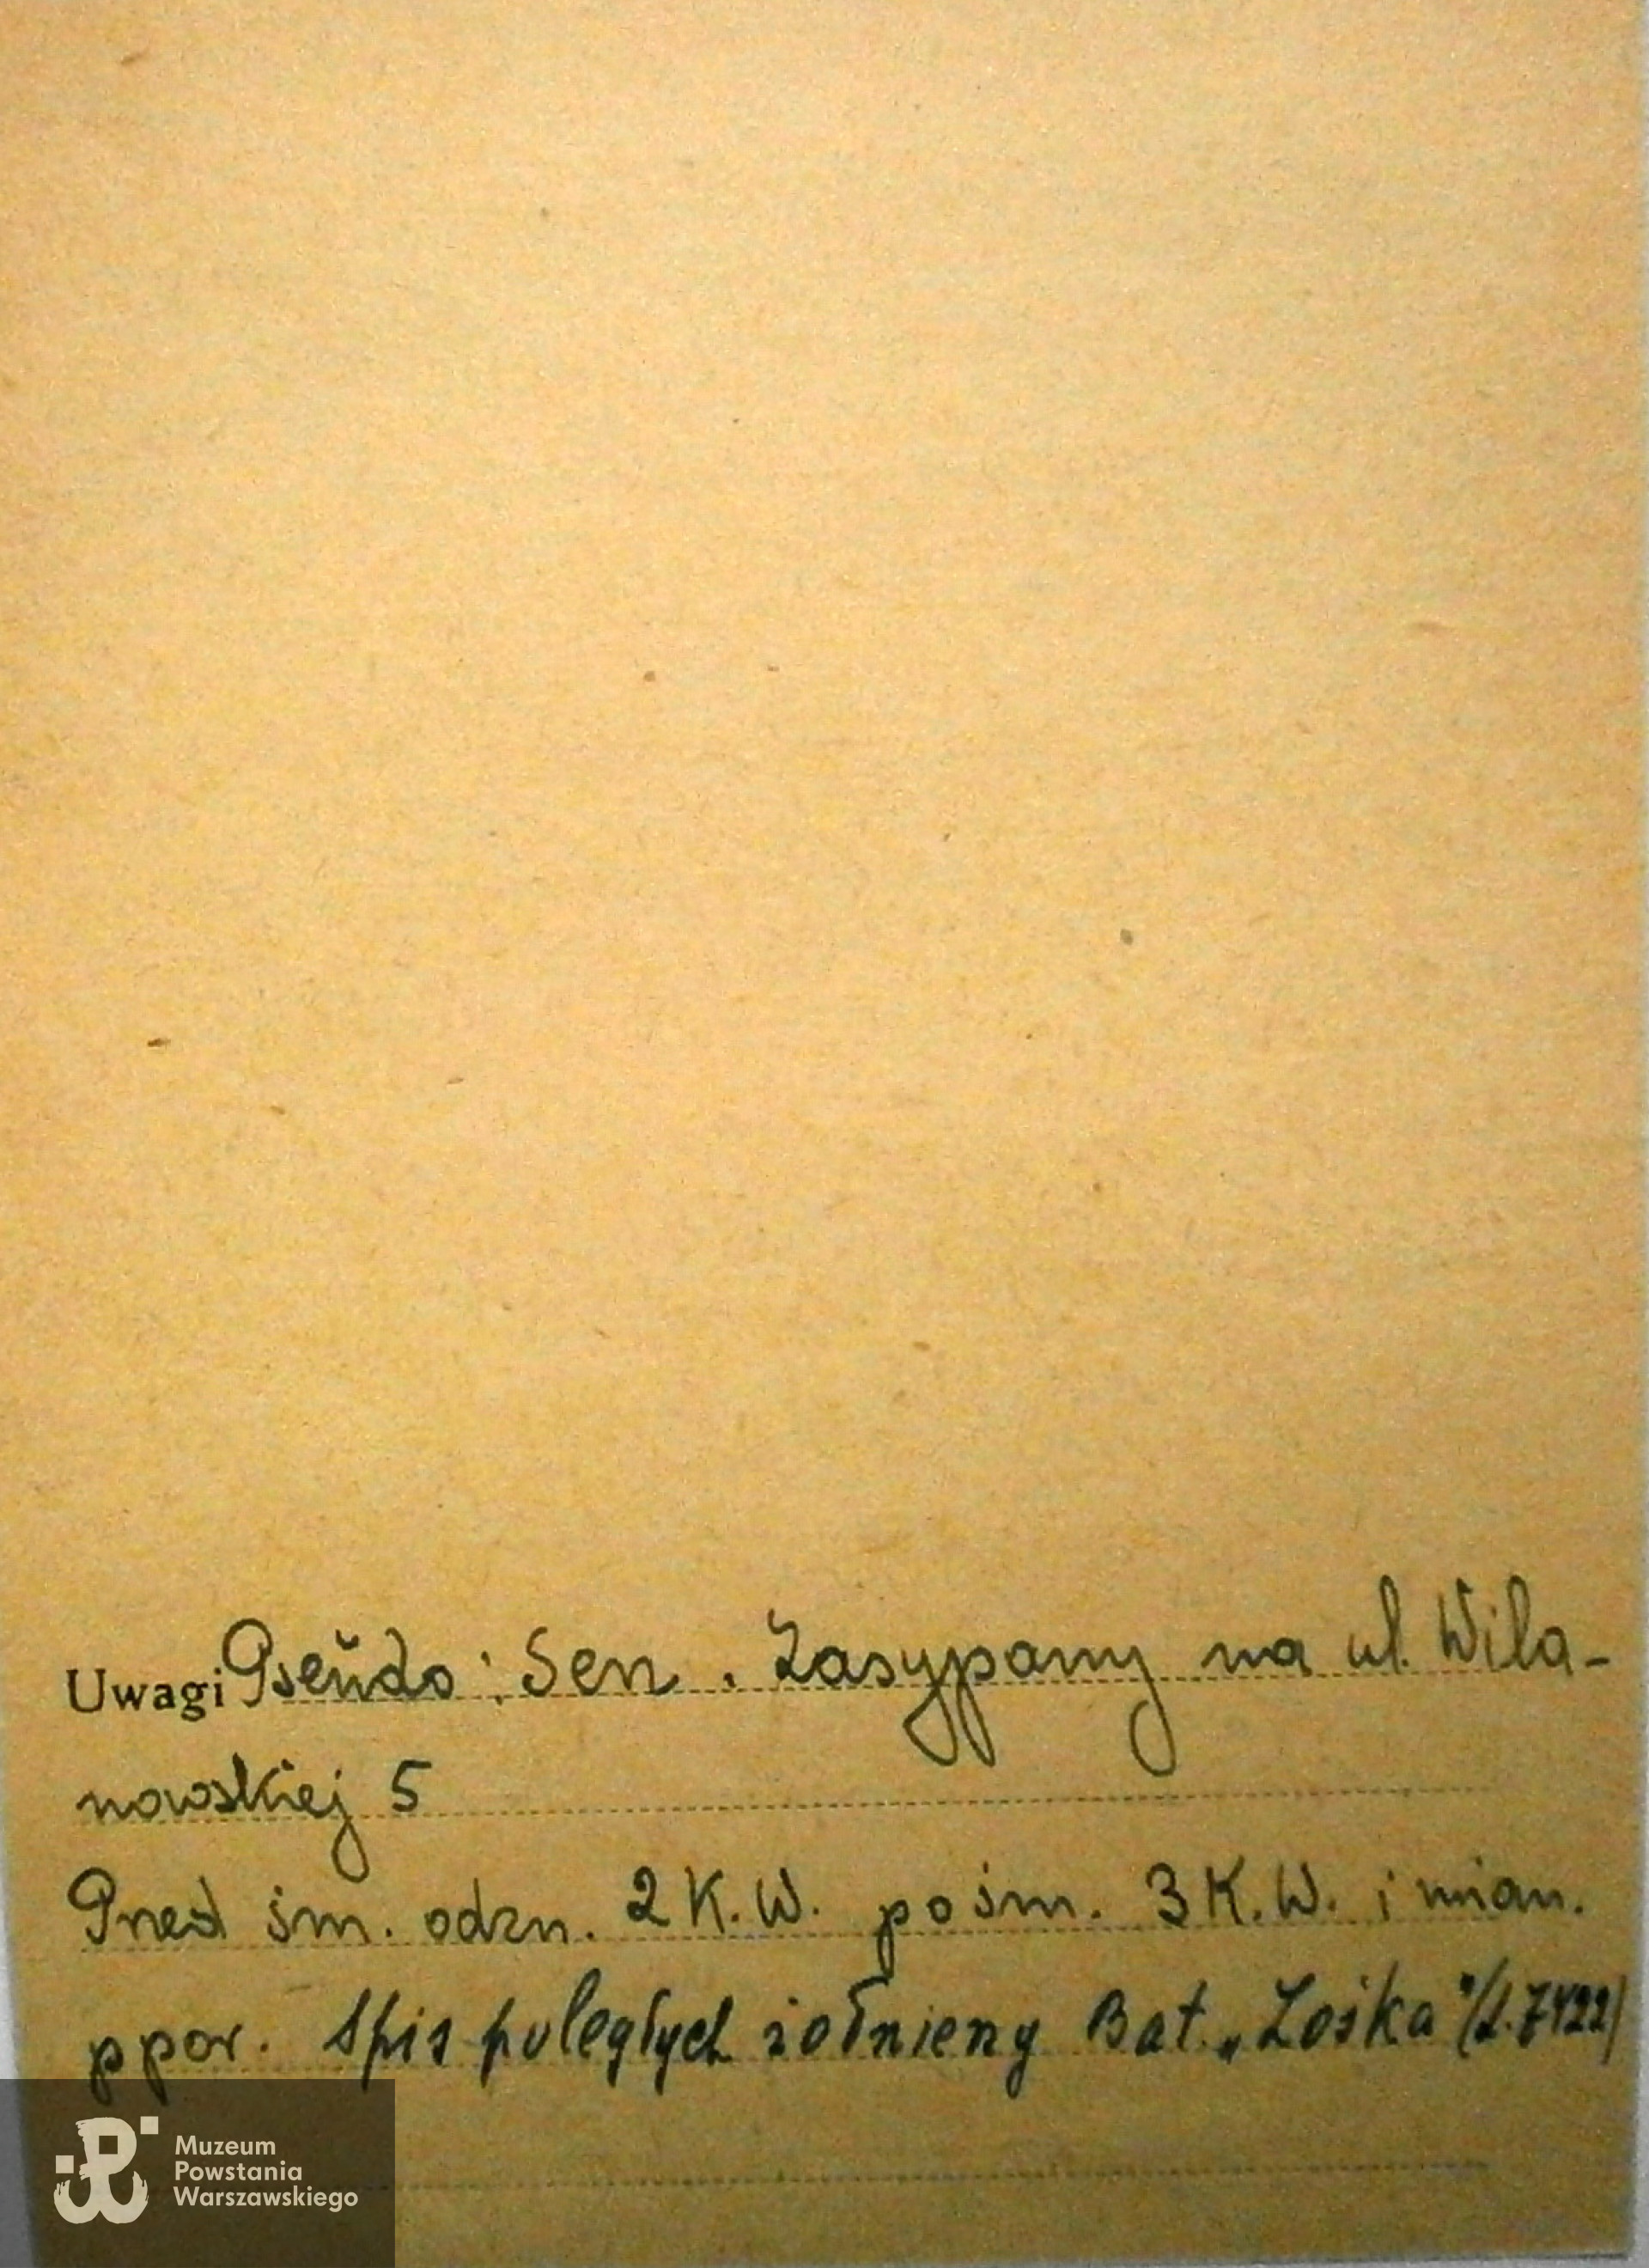 Uwagi Pseŭdo: Sen. Zasypany na ul. Wila-
nowskiej 5
Przed śm. odzn. 2 K.W. po śm. 3 K.W. i mian.
ppor. Spis poległych żołnierzy Bat. „Zośka" /L.7422/
Muzeum
Powstania
Warszawskiego